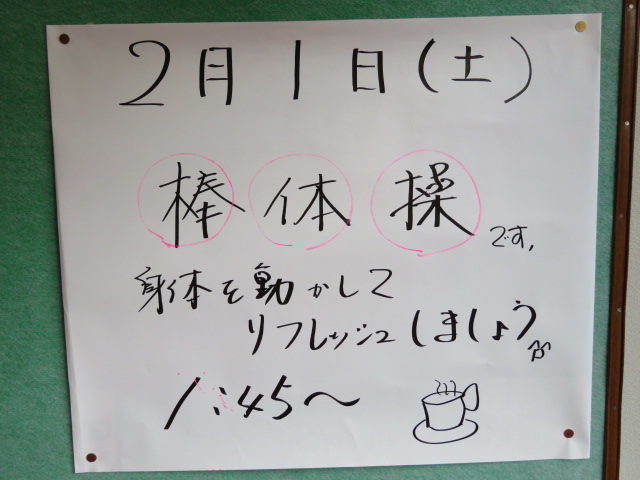 2月1日(土)
棒体操です。
身体を動かして
リフレッシュしましょう
1:45〜